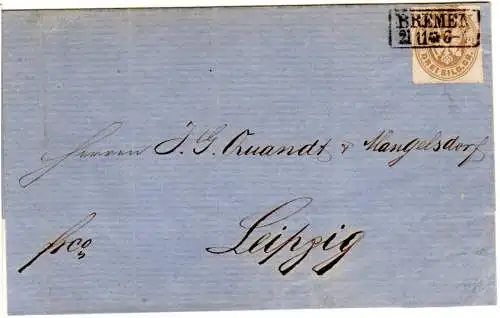 BREMEN
21 11 * 6-
DREI SILB. GR.
Herren J. G. Quandt & Mangelsdorf
frco
Leipzig